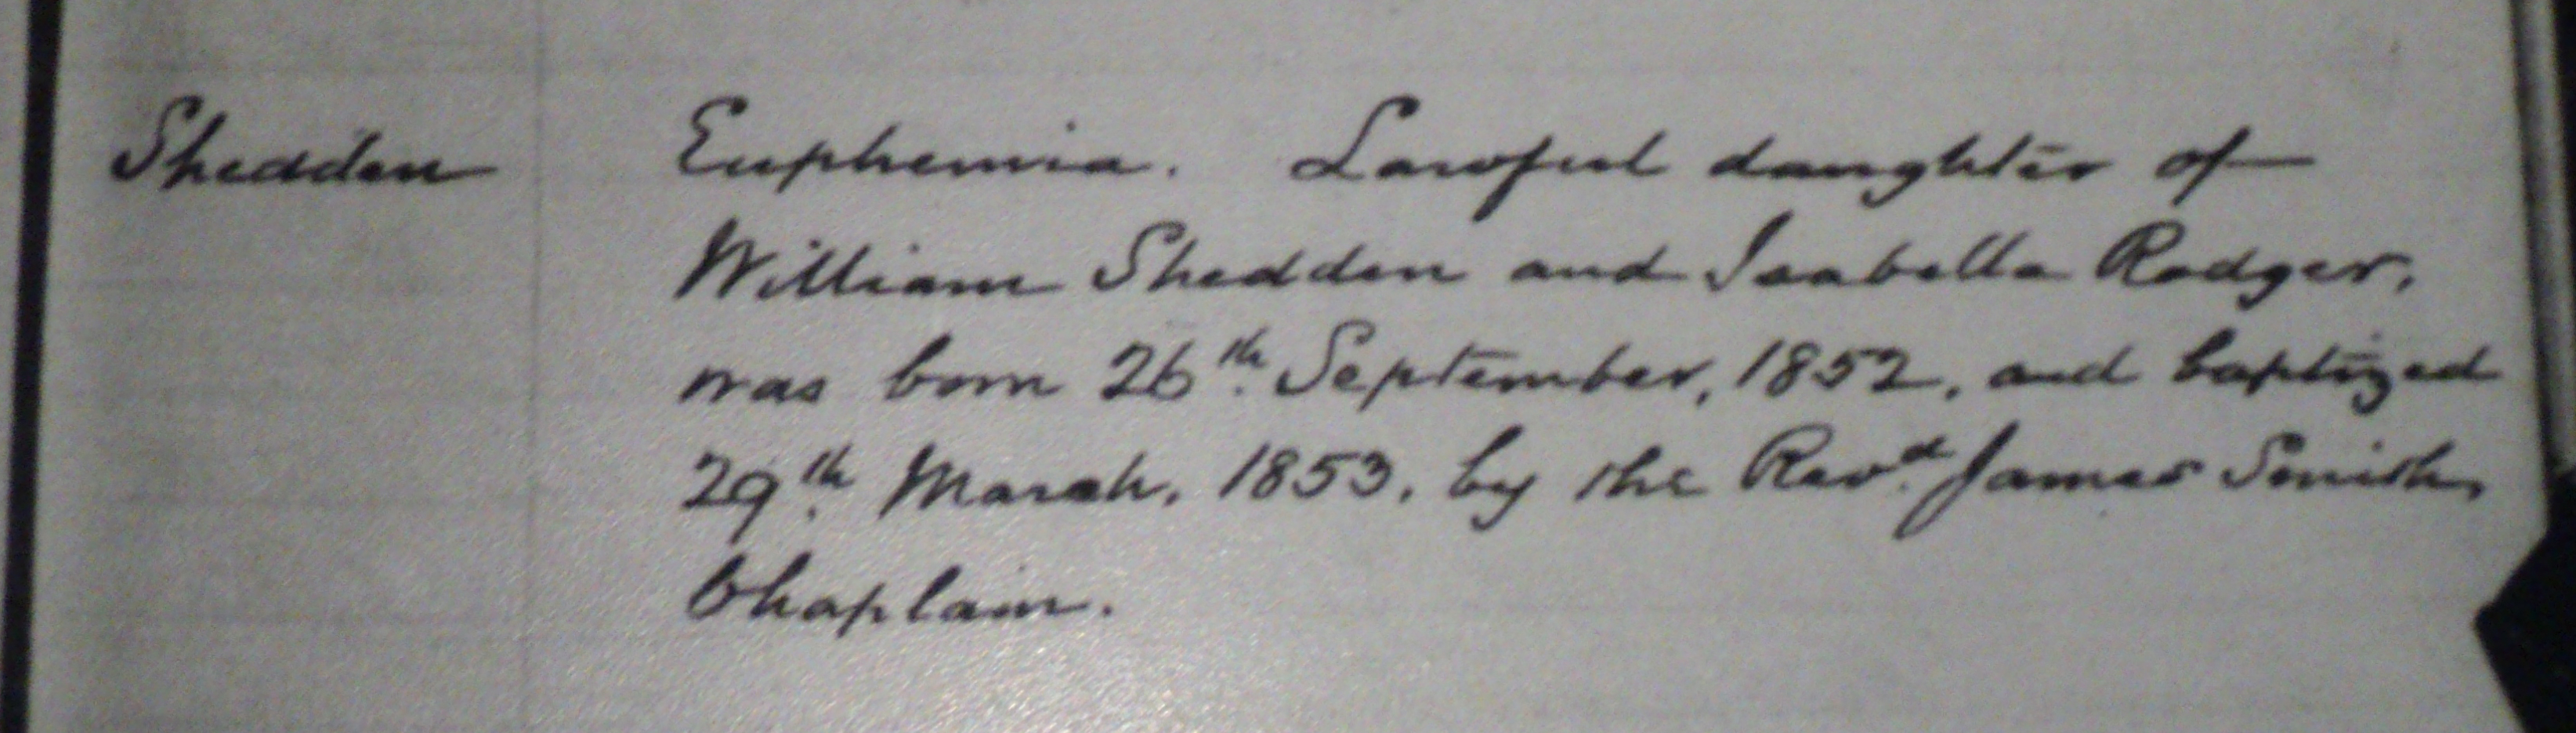 Shedden Euphemia. Lawful daughter of
William Shedden and Isabella Rodger,
was born 26th. September, 1852, and baptized
29th. March, 1853, by the Revd. James Smith,
Chaplain.